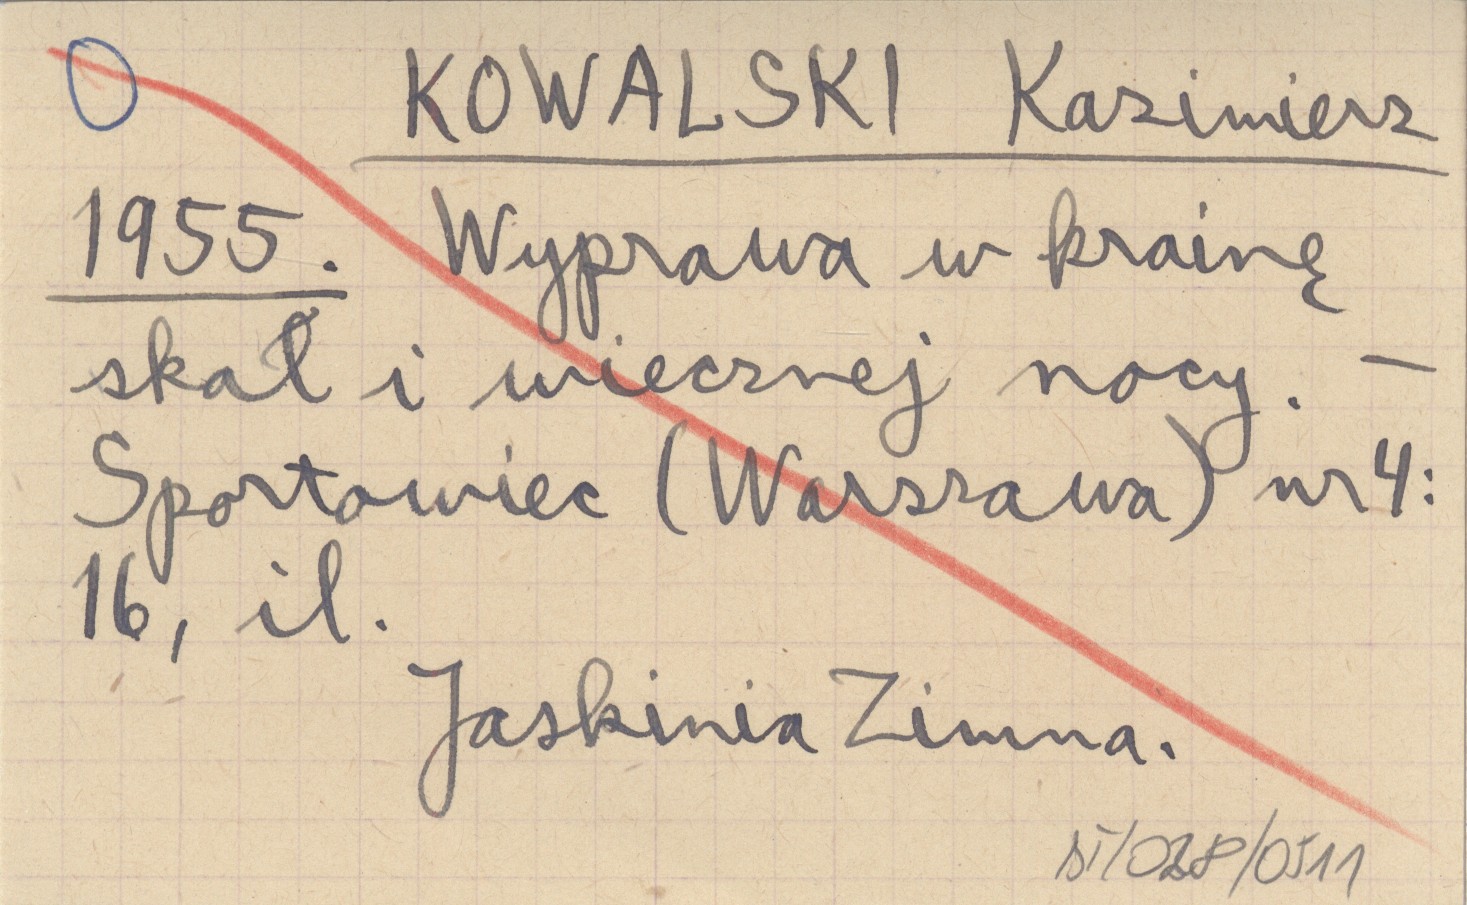 KOWALSKI Kazimierz
1955. Wyprawa w krainę
skał i wiecznej nocy. —
Sportowiec (Warszawa) nr 4:
16, il.
Jaskinia Zimna.
/028/0511